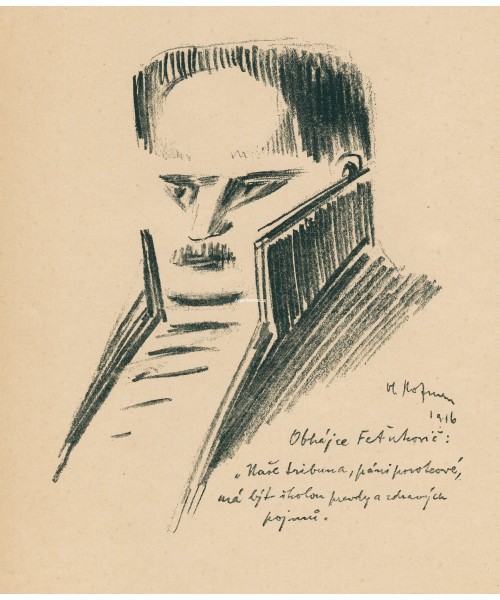 Vl. Hofman
1916
Obhájce Feťukovič:
„Naše tribuna, páni porotcové,
má být školou pravdy a zdravých
pojmů.